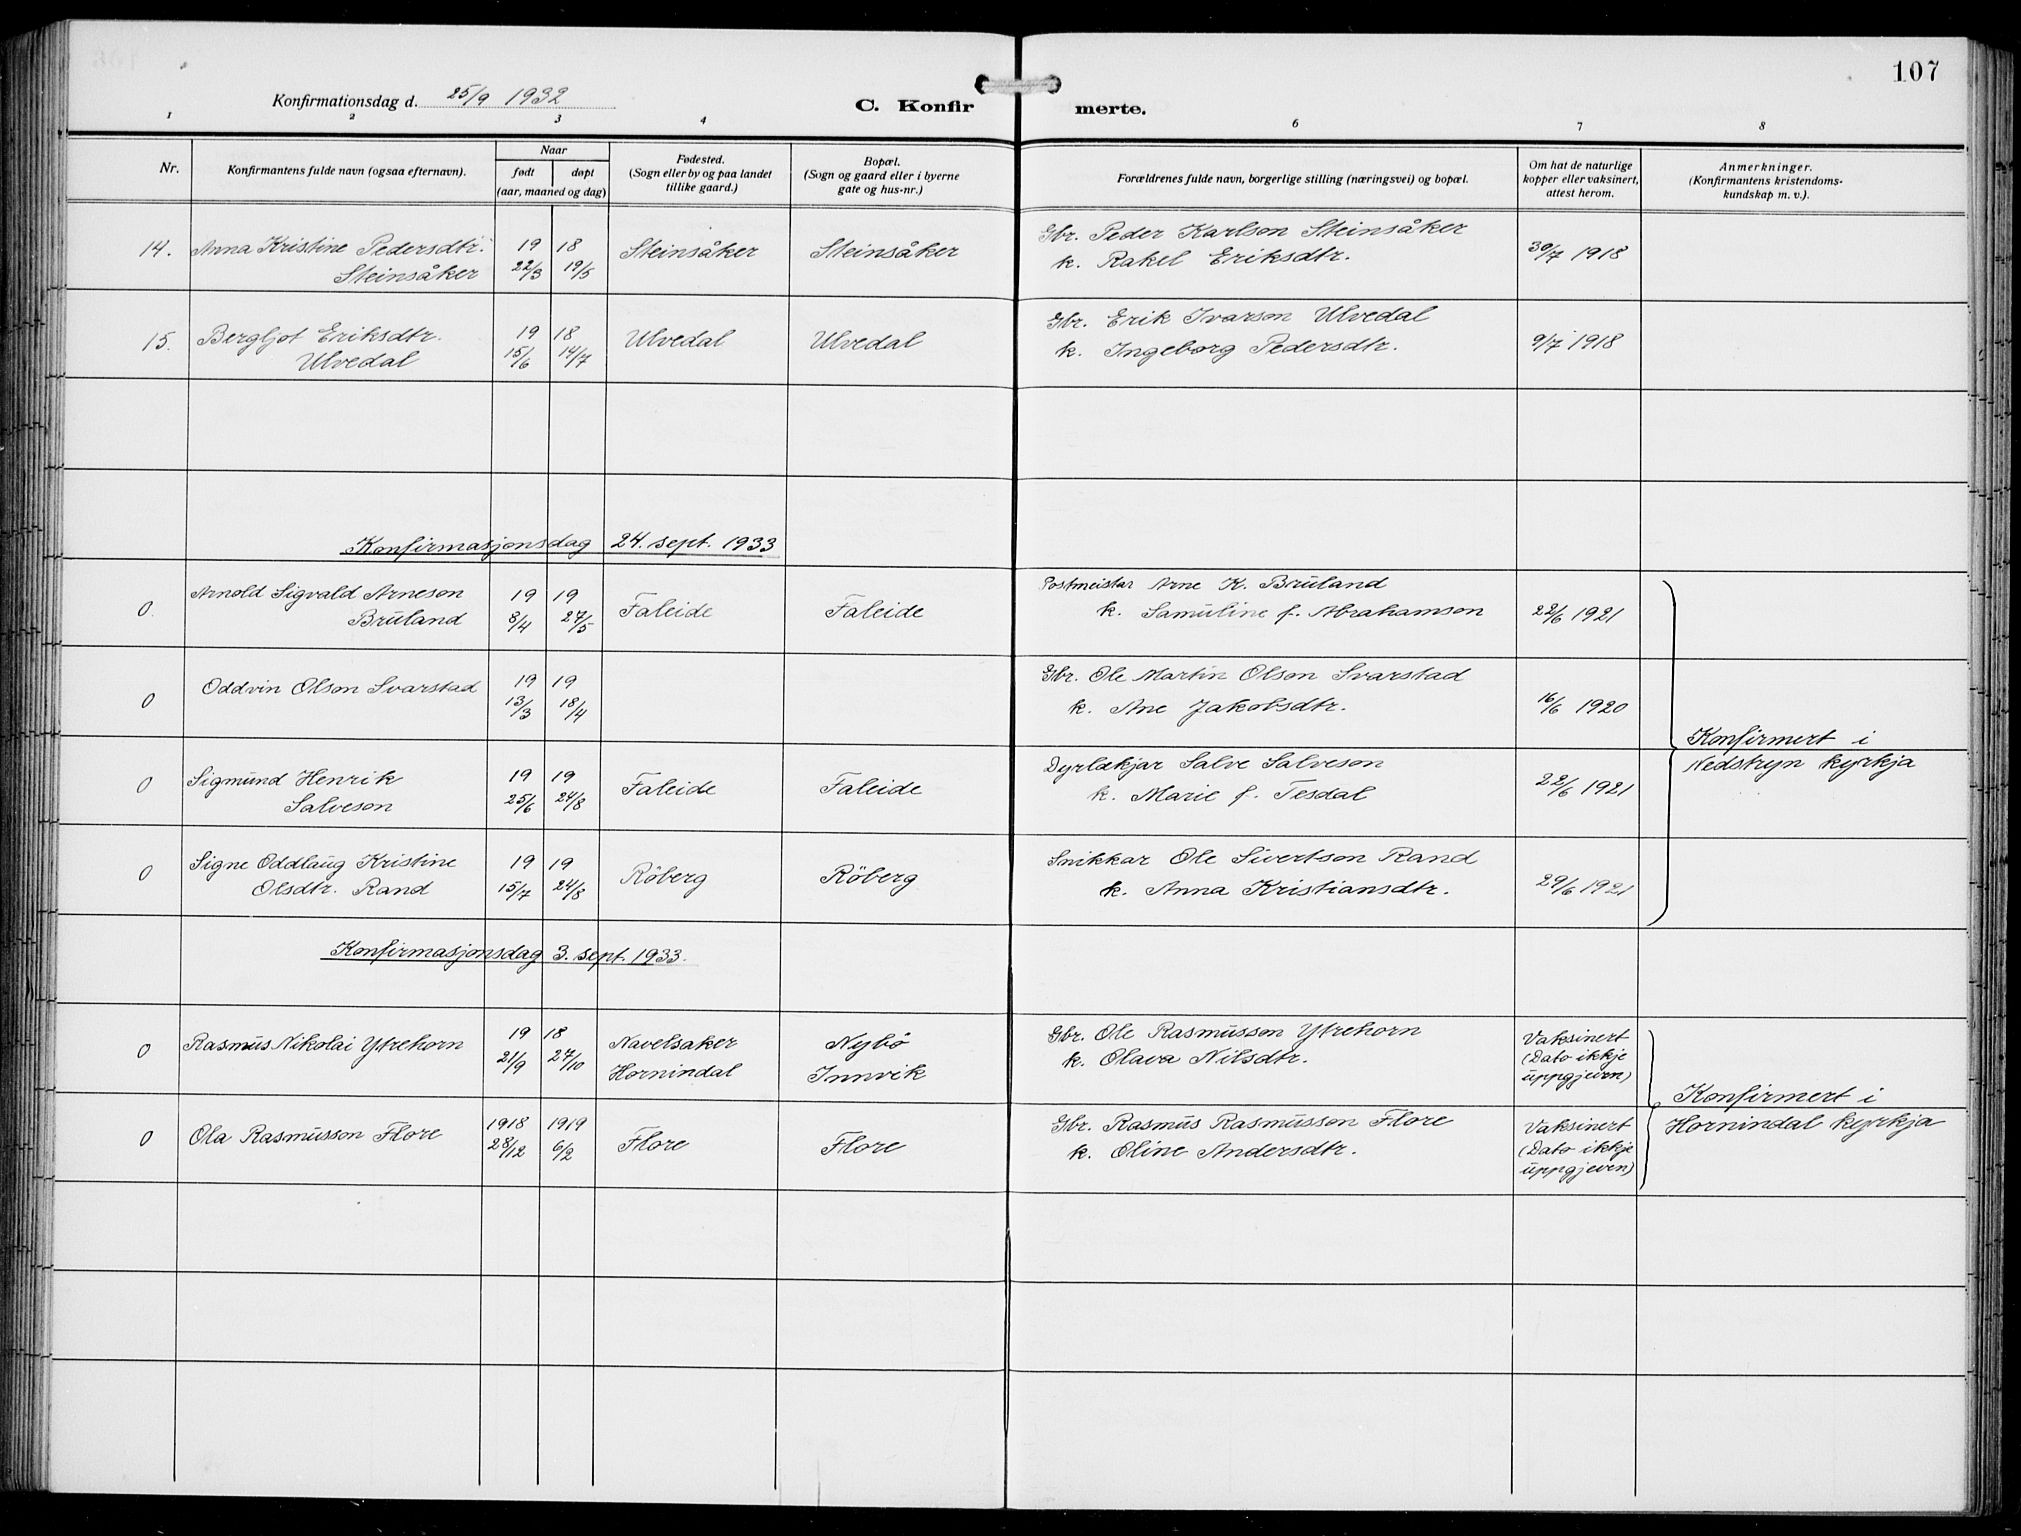 107
Konfirmationsdag d. 25/9 1932
C. Konfirmerte.
1 2 3 4 6 7 8
Nr.
Konfirmantens fulde navn (ogsaa efternavn).
Naar
født døpt
(aar, maaned og dag)
Fødested.
(Sogn eller by og paa landet
tillike gaard.)
Bopæl.
(Sogn og gaard eller i byerne
gate og hus-nr.)
Forældrenes fulde navn, borgerlige stilling (næringsvei) og bopæl.
Om hat de naturlige
kopper eller vaksinert,
attest herom.
Anmerkninger.
(Konfirmantens kristendoms-
kundskap m. v.).
14. Anna Kristine Pedersdtr. 19 18 Steinsåker Steinsåker Gbr. Peder Karlson Steinsåker 30/7 1918
Steinsåker 22/3 19/5 k. Rakel Eriksdtr.
15. Bergljot Eriksdtr. 19 18 Ulvedal Ulvedal Gbr. Erik Ivarson Ulvedal 9/7 1918
Ulvedal 15/6 14/7 k. Ingeborg Pedersdtr.
Konfirmasjonsdag 24. sept. 1933
0. Arnold Sigvald Arneson 19 19 Faleide Faleide Postmeistar Arne K. Bruland
Bruland 8/4 27/5 k. Samuline f. Abrahamson 22/6 1921
0 Oddvin Olson Svarstad 19 19 Gbr. Ole Martin Olson Svarstad
13/3 18/4 k. Ane Jakobsdtr. 16/6 1920
Konfirmert i
Nedstryn kyrkja
0 Sigmund Henrik 19 19 Faleide Faleide Dyrlækjar Salve Salveson
Salveson 25/6 24/8 k. Marie f. Tesdal 22/6 1921
0 Signe Oddlaug Kristine 19 19 Røberg Røberg Snikkar Ole Sivertson Rand
Olsdtr. Rand 15/7 24/8 k. Anna Kristiansdtr. 29/6 1921
Konfirmasjonsdag 3. sept. 1933.
0 Rasmus Nikolai Ytrehorn 19 18 Navelsaker Nybø Gbr. Ole Rasmusson Ytrehorn Vaksinert
21/9 27/10 Hornindal Innvik k. Olava Nilsdtr. (Dato ikkje
uppgjeven)
Konfirmert i
Hornindal kyrkja
0 Ola Rasmusson Flore 1918 1919 Flore Flore Gbr. Rasmus Rasmusson Flore Vaksinert
28/12 6/2 k. Oline Andersdtr. (Dato ikkje
uppgjeven)